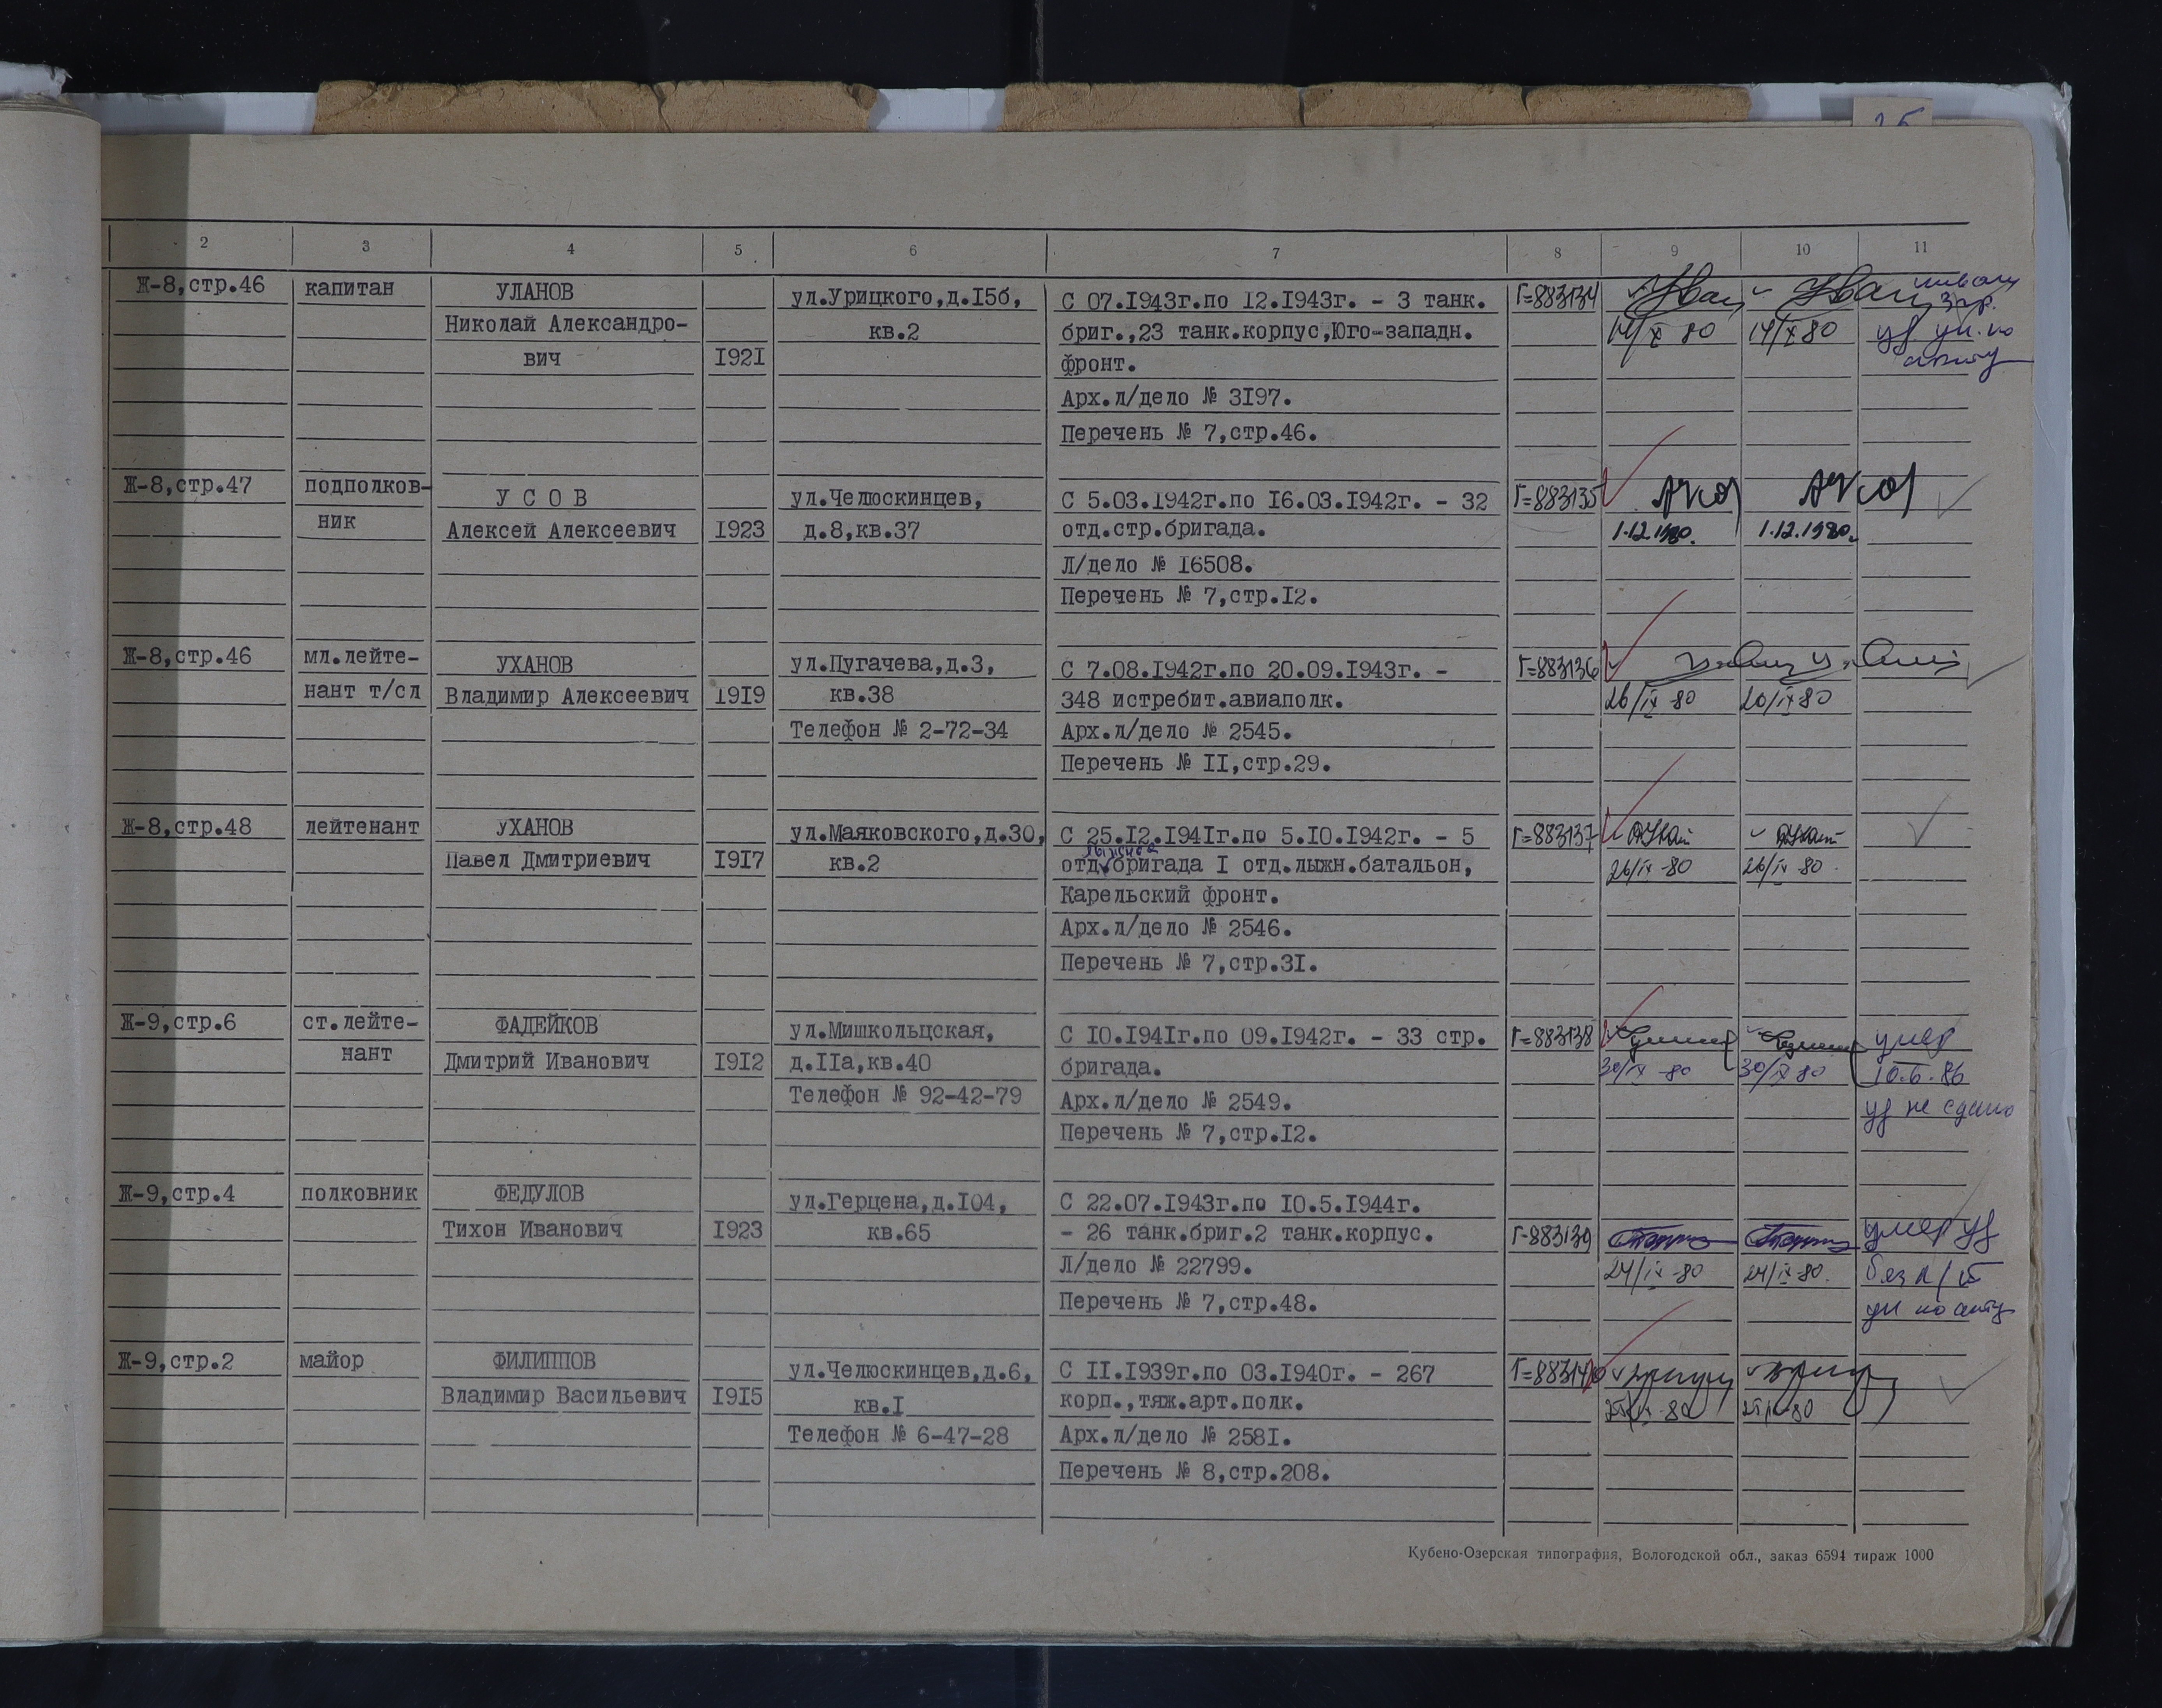 2 3 4 5 6 7 8 9 10 11
Ж-8,стр.46 капитан УЛАНОВ ул.Урицкого,д.15б, С 07.1943г.по 12.1943г. - 3 танк. Г=883134
Николай Александро- кв.2 бриг.,23 танк.корпус,Юго-западн. 14/X 80 14/X 80
вич 1921 фронт.
Арх.л/дело № 3197.
Перечень № 7,стр.46.
Ж-8,стр.47 подполков- УСОВ ул.Челюскинцев, С 5.03.1942г.по 16.03.1942г. - 32 Г=883135
ник Алексей Алексеевич 1923 д.8,кв.37 отд.стр.бригада. 1.12.1980. 1.12.1980.
Л/дело № 16508.
Перечень № 7,стр.12.
Ж-8,стр.46 мл.лейте- УХАНОВ ул.Пугачева,д.3, С 7.08.1942г.по 20.09.1943г. - Г=883136
нант т/сл Владимир Алексеевич 1919 кв.38 348 истребит.авиаполк. 26/IX-80 26/IX-80
Телефон № 2-72-34 Арх.л/дело № 2545.
Перечень № 11,стр.29.
Ж-8,стр.48 лейтенант УХАНОВ ул.Маяковского,д.30, С 25.12.1941г.по 5.10.1942г. - 5 Г=883137
лыжная
Павел Дмитриевич 1917 кв.2 отд.бригада 1 отд.лыжн.батальон, 26/IX-80 26/IX-80
Карельский фронт.
Арх.л/дело № 2546.
Перечень № 7,стр.31.
Ж-9,стр.6 ст.лейте- ФАДЕЙКОВ ул.Мишкольцская, С 10.1941г.по 09.1942г. - 33 стр. Г=883138 умер
нант Дмитрий Иванович 1912 д.11а,кв.40 бригада. 30/X-80 30/X 80 10.6.86
Телефон № 92-42-79 Арх.л/дело № 2549. уд не сдано
Перечень № 7,стр.12.
Ж-9,стр.4 полковник ФЕДУЛОВ ул.Герцена,д.104, С 22.07.1943г.по 10.5.1944г.
Тихон Иванович 1923 кв.65 - 26 танк.бриг.2 танк.корпус. Г-883139 умер уд
Л/дело № 22799. 24/IX-80 24/IX-80.
Перечень № 7,стр.48. ун по акту
Ж-9,стр.2 майор ФИЛИППОВ ул.Челюскинцев,д.6, С 11.1939г.по 03.1940г. - 267 Г=883140
Владимир Васильевич 1915 кв.1 корп.,тяж.арт.полк.
Телефон № 6-47-28 Арх.л/дело № 2581.
Перечень № 8,стр.208.
Кубено-Озерская типография, Вологодской обл., заказ 6594 тираж 1000